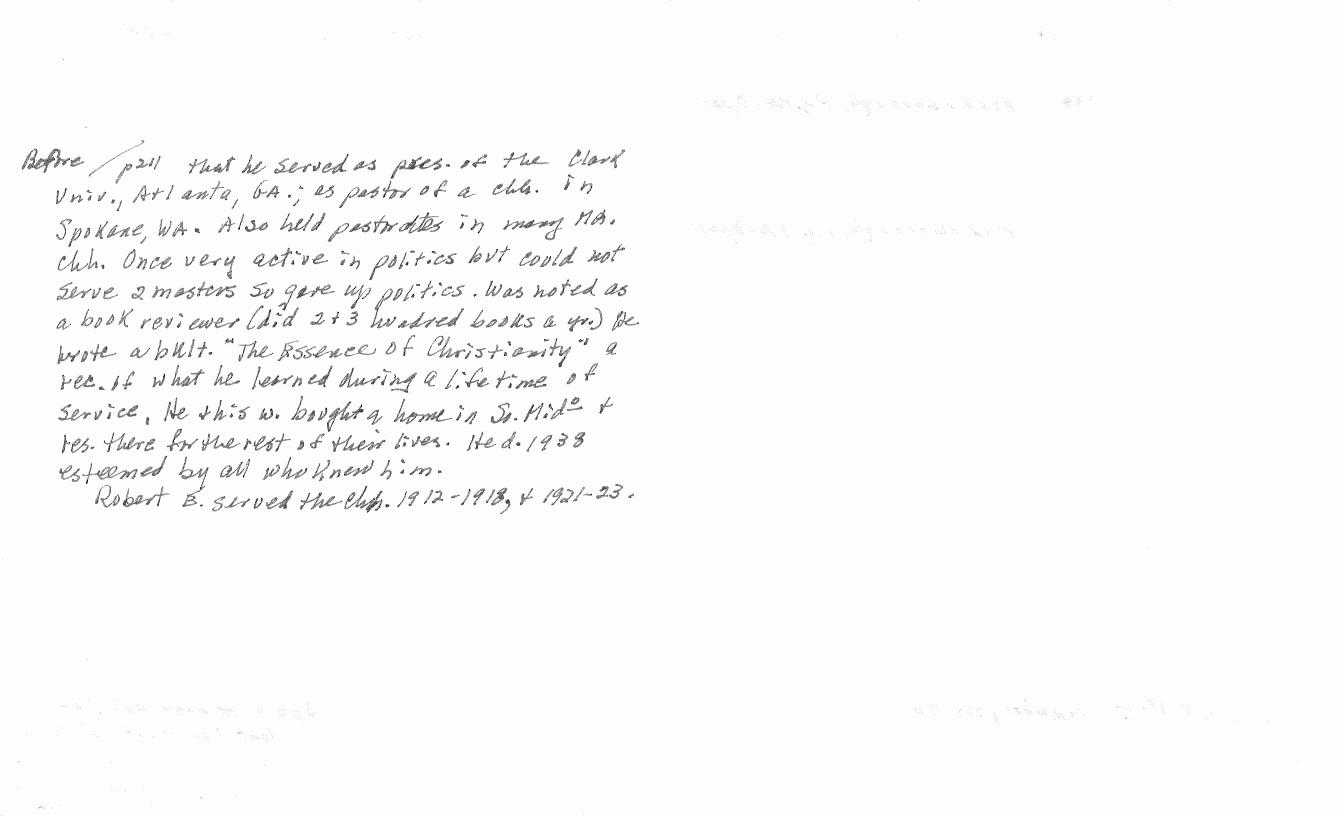 Before / p211 that he served as pres. of the Clark
Univ., Atlanta, GA.; as pastor of a chh. in
Spokane, WA. Also held pastorates in many MA.
chh. Once very active in politics but could not
serve 2 masters so gave up politics. Was noted as
a book reviewer (did 2+3 hundred books a yr.) He
wrote a bult. "The Essence of Christianity" a
rec. of what he learned during a lifetime of
service. He + his w. bought a home in So. Mid° +
res. there for the rest of their lives. He d. 1938
esteemed by all who knew him.
Robert E. served the Chh. 1912-1918, + 1921-23.